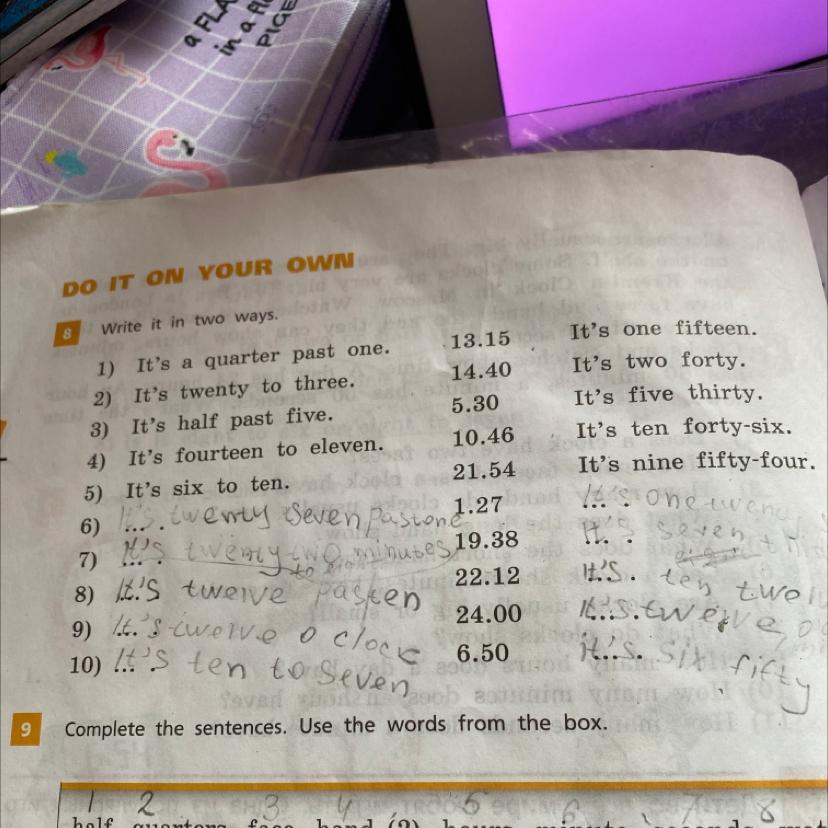 a FLA
in a fl
PIGE
DO IT ON YOUR OWN
8 Write it in two ways.
1) It's a quarter past one. 13.15 It's one fifteen.
2) It's twenty to three. 14.40 It's two forty.
3) It's half past five. 5.30 It's five thirty.
4) It's fourteen to eleven. 10.46 It's ten forty-six.
5) It's six to ten. 21.54 It's nine fifty-four.
6) It's twenty seven past one 1.27 It's one twen
7) It's twenty two minutes to 19.38 It's seven
8) It's twelve past ten 22.12 It's ten twel
9) It's twelve o clock 24.00 It's twelve o
10) It's ten to seven 6.50 it's six fifty
9 Complete the sentences. Use the words from the box.
1 2 3 4 5 6 7 8
half quarters face hand (2) hours minute